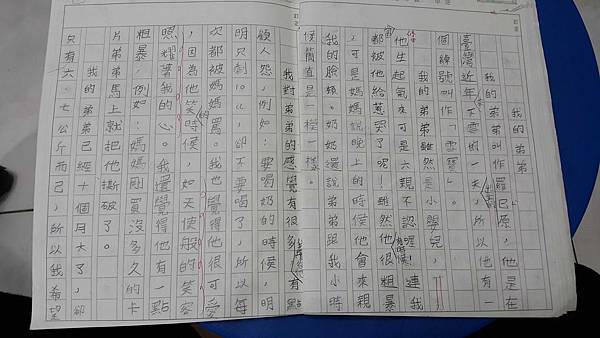 我的弟弟
我的弟弟叫作羅己原,他是在
臺灣近年不雪的一天出生,所以他有一
個綽號叫作「雪寶」。
我的弟弟雖然是小嬰兒,
他生起氣來可是六親不認喔!連我
都被他給惹哭了呢!雖然他很粗暴
,可是媽媽說晚上的時候他會來親
我的臉頰。奶奶還說弟弟跟我小時
候簡直是一模一樣。
我對弟弟的感覺有很多,有點
顧人怨,例如:要喝奶的時候,明
明只剩10cc,卻不要喝了,所以每
次都被媽媽罵。我也覺得他很可愛
,因為他笑的時候,如天使般的笑容
照耀著我的心。我還覺得他有一點
粗暴,例如:媽媽剛買沒多久的卡
片弟弟馬上就把他撕破了。
我的弟弟已經十個月大了,卻
只有六、七公斤而已,所以我希望